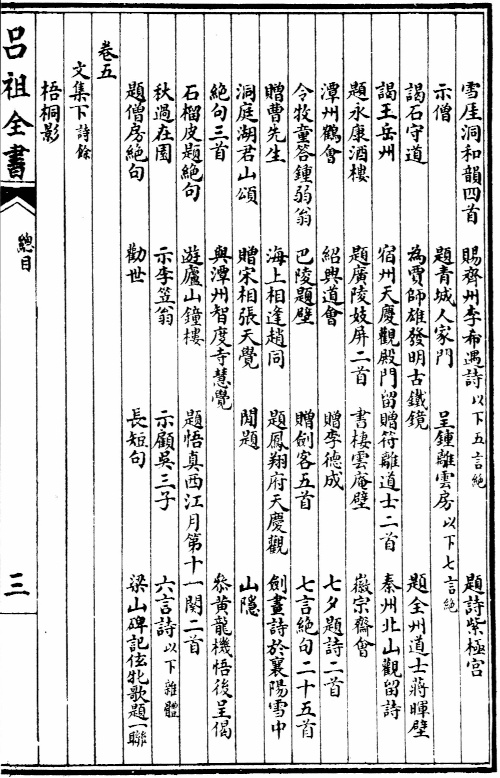 雪厓洞和韻四首　賜齊州李希遇詩以下五言絕　題詩紫極宮
示僧　題青城人家門　呈鍾離雲房以下七言絕
謁石守道　為賈師雄發明古鐵鏡　題全州道士蔣暉壁
謁王岳州　宿州天慶觀殿門留贈符離道士二首　秦州北山觀留詩
題永康酒樓　題廣陵妓屏二首　書棲雲庵壁　徽宗齋會
潭州鶴會　紹興道會　贈李德成　七夕題詩二首
令牧童答鍾弱翁　巴陵題壁　贈劍客五首　七言絕句二十五首
贈曹先生　海上相逢趙同　題鳳翔府天慶觀　劍畫詩於襄陽雪中
洞庭湖君山頌　贈宋相張天覺　閒題　山隱
絕句三首　與潭州智度寺慧覺　叅黃龍機悟後呈偈
石榴皮題絕句　遊廬山鐘樓　題悟真西江月第十一闋二首
秋過在園　示李笠翁　示顧吳三子　六言詩以下雜體
題僧房絕句　勸世　長短句　梁山碑記伭牝歌題一聯
卷五
文集下詩餘
梧桐影
呂祖全書
總目
三